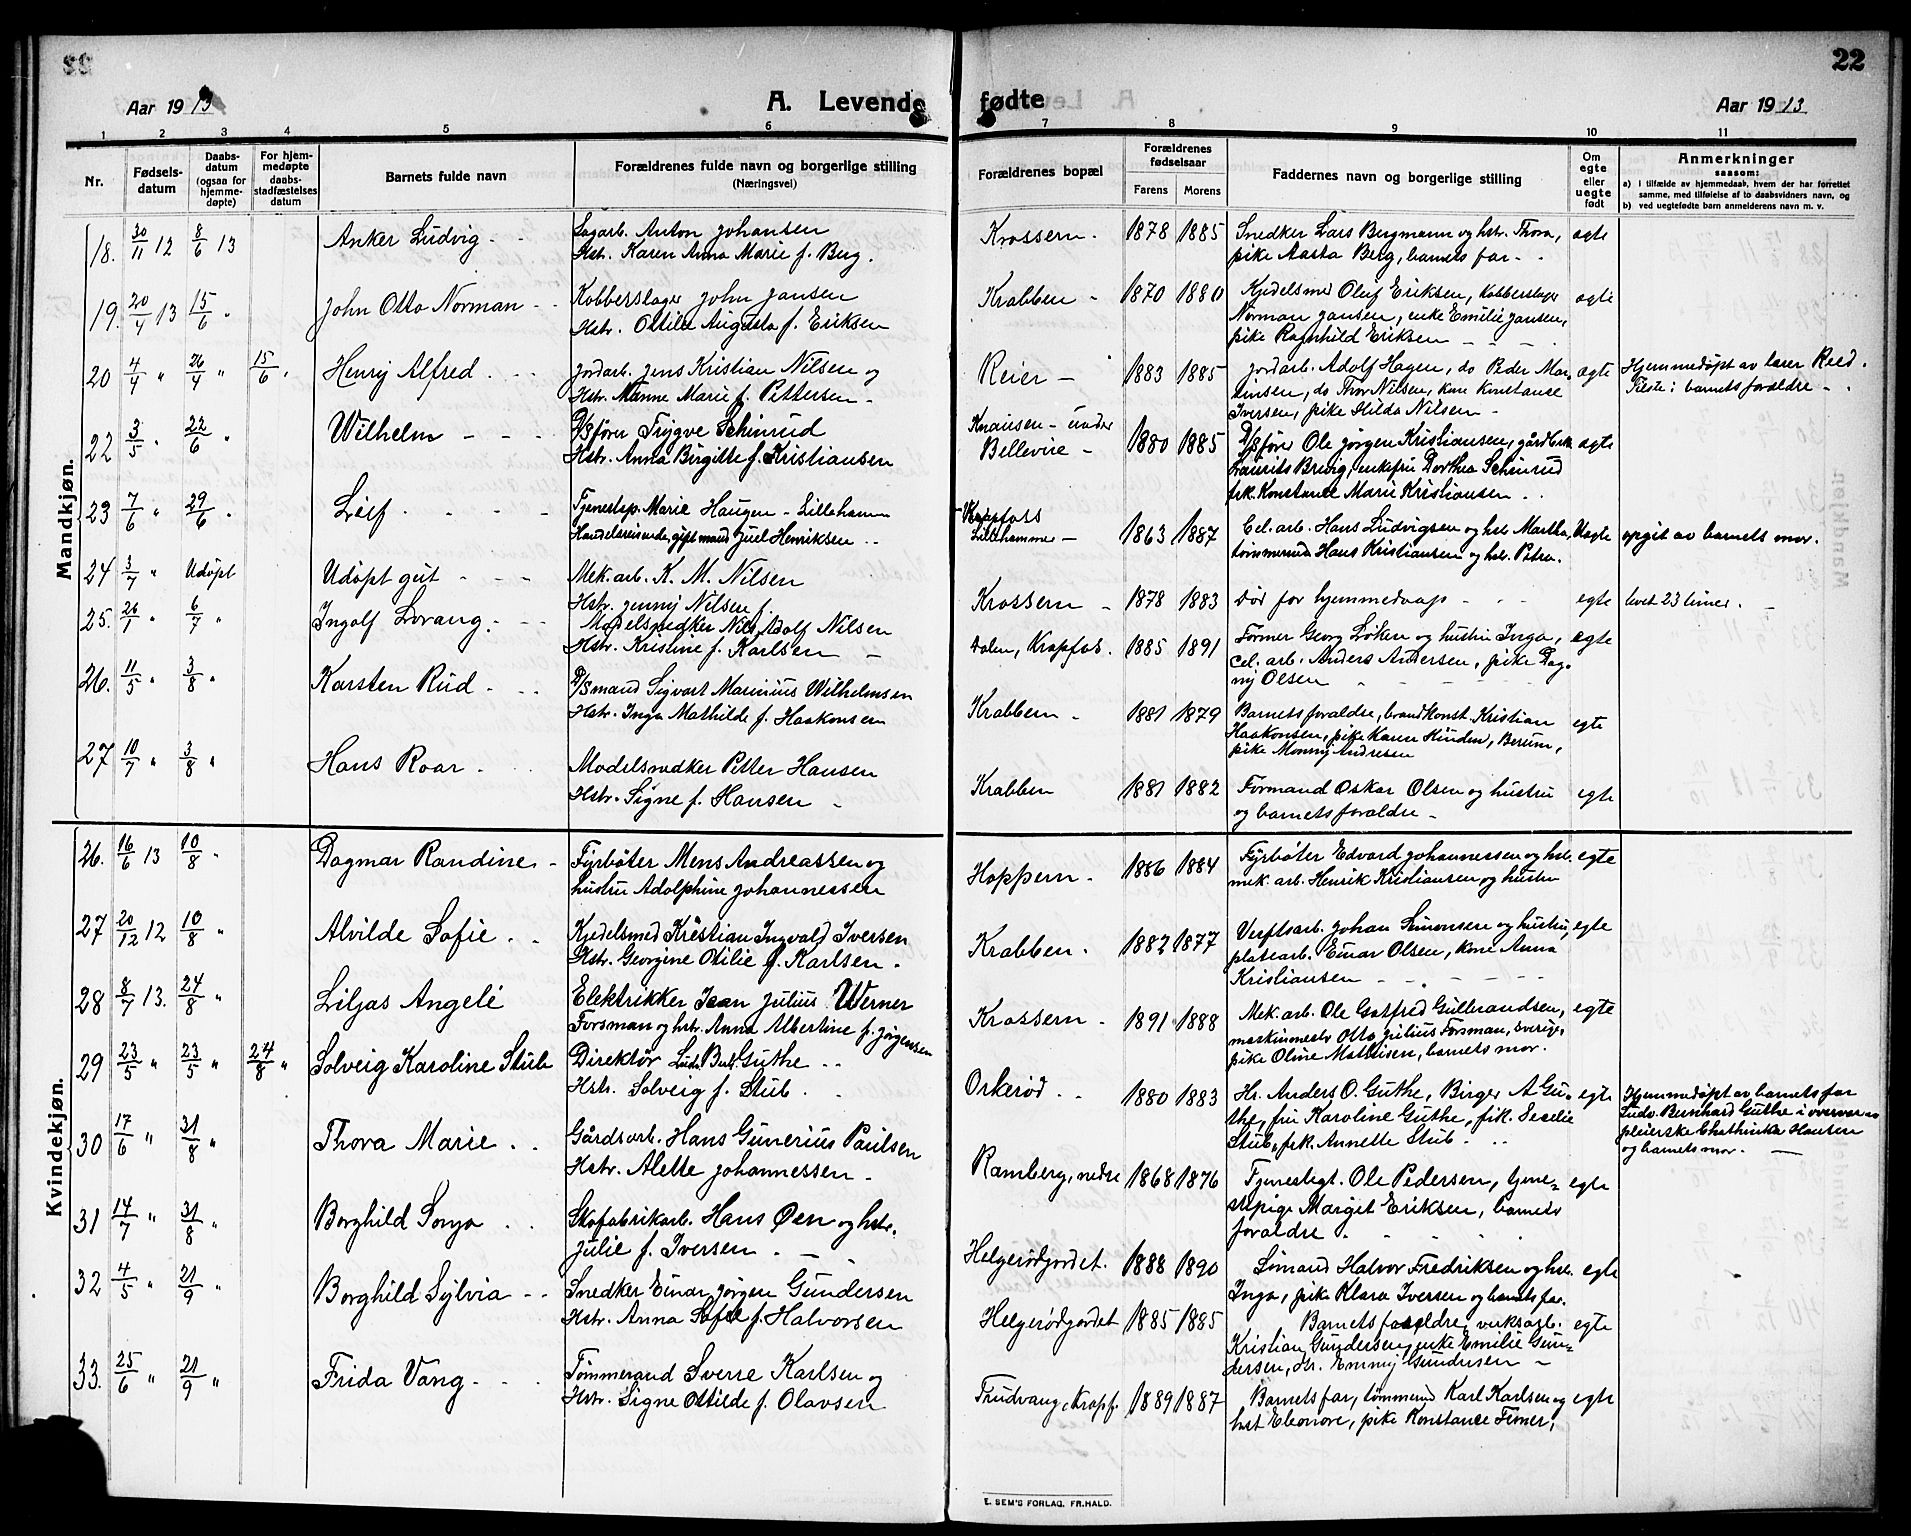 22
Aar 1913
A. Levende fødte
Aar 1913
1 2 3 4 5 6 7 8 9 10 11
Nr.
Fødsels-
datum
Daabs-
datum
(ogsaa for
hjemme-
døpte)
For hjem-
medøpte
daabs-
stadfæstelses
datum
Barnets fulde navn
Forældrenes fulde navn og borgerlige stilling
(Næringsvei)
Forældrenes bopæl
Forældrenes
fødselsaar
Farens Morens
Faddernes navn og borgerlige stilling
Om
egte
eller
uegte
født
Anmerkninger
saasom:
a) i tilfælde av hjemmedaab, hvem der har forrettet
samme, med tilføielse af to daabsvidners navn, og
b) ved uegtefødte barn anmelderens navn m. v.
Mandkjøn.
18. 30/11 12 8/6 13 Anker Ludvig Sagarb. Anton Johansen Krossern 1878 1885 Snedker Lars Bergmann og hstr. Thora, egte
Hstr. Karen Anna Marie f. Berg. pike Aasta Berg, barnets far
19. 20/4 13 15/6 " John Otto Norman Kobberslager John Jansen Krabben 1870 1880 Kjedelsmed Oluf Eriksen, Kobberslager egte
Hstr. Ottilie Augusta f. Eriksen Norman Jansen, enke Emilie Jansen,
pike Ragnhild Eriksen
20 4/4 " 26/4 " 15/6 " Henry Alfred Jordarb. Jens Kristian Nilsen og Reier 1883 1885 Jordarb. Adolf Hagen, do Peder Mar- egte Hjemmedøpt av lærer Reed.
Hstr. Manne Marie f. Pettersen tinsen, do Thor Nilsen, kone Konstanse Teste: barnets forældre
Iversen, pike Hilda Nilsen
22 3/5 " 22/6 " Wilhelm D/S fører Trygve Schinrud Knausen - under
Bellevue 1880 1885 D/S fører Ole Jørgen Kristiansen, gårdbruk egte
Hstr. Anna Birgitte f. Kristiansen Laurits Brevig, enkefru Dorthea Schinrud
frk. Konstance Marie Kristiansen
23 7/6 " 29/6 " Leif Tjenestep. Marie Haugen - Lillehamm Krapfoss
Lillehammer 1863 1887 Cel. arb. Hans Ludvigsen og hstr Martha, Uegte opgit av barnets mor.
Handelsreisende, gift mand Juel Henriksen tømmermd Hans Kristiansen og hstr. Petra.
24 3/7 " Udøpt Udøpt gut Mek. arb. K. M. Nilsen Krossern 1878 1883 Død før hjemmedaap egte levet 23 timer.
Hstr. Jenny Nilsen f.
25. 26/1 " 6/7 " Ingolf Lorang Modelsnedker Nils Adolf Nilsen Dalen, Krapfos. 1885 1891 Former Georg Løken og hustru Inga, egte
Hstr. Kristine f. Karlsen cel. arb. Anders Andersen, pike Dag-
ny Olsen
26. 11/5 " 3/8 " Karsten Rud D/S mand Sigvart Marinius Wilhelmsen Krabbern 1881 1879 Barnets forældre, brandkonst. Kristian egte
Hstr. Inga Mathilde f. Haakonsen Haakonsen, pike Karen Hinden, Berum,
pike Monny Andresen
27 10/7 " 3/8 " Hans Roar Modelsnedker Petter Hansen Krabben 1881 1882 Formand Oskar Olsen og hustru egte
Hstr. Signe f. Hansen og barnets forældre
Kvindekjøn.
26. 16/6 13 10/8 " Dagmar Randine Fyrbøter Mens Andreassen og Hoppern 1886 1884 Fyrbøter Edvard Johannessen og hstr. egte
hustru Adolphine Johannessen mek. arb. Henrik Kristiansen og hustru
27 20/12 12 10/8 " Alvilde Sofie Kjedelsmed Kristian Ingvald Iversen Krabben 1882 1877 Verftsarb. Johan Simonsen og hustru, egte
Hstr. Georgine Otilie f. Karlsen platearb. Einar Olsen, kone Anna
Kristiansen
28 8/7 13. 24/8 " Liljas Angelé Elektrikker Jean Julius Werner Krossern 1891 1888 Mek. arb. Ole Gotfred Gulbrandsen, egte
Forsman og hstr. Anna Albertine f. Jørgensen maskinmestr Otto Julius Forsman, Sverige,
pike Oline Mathisen, barnets mor.
29 23/5 " 23/5 " 24/8 " Solveig Karoline Stub Direktør Ludv. Bernh. Guthe Orkerød 1880 1883 Hr. Anders O. Guthe, Birger A Gu- egte Hjemmedøpt av barnets far
Hstr. Solveig f. Stub the, fru Karoline Guthe, frk. Secilie Ludv. Bernhard Guthe i overvær av
Stub, frk. Annette Stub pleierske Chathinka Hansen
og barnets mor.
30 17/6 " 31/8 " Thora Marie Gårdsarb. Hans Gunerius Paulsen Ramberg, nedre 1868 1876 Tjenestegt. Ole Pedersen, tjene- egte
Hstr. Alette Johannessen stepige Margit Eriksen, barnets
forældre
31 14/7 " 31/8 " Borghild Sonja Skofabrikarb. Hans Øen og hstr. Helgerødgjordet. 1888 1890 Sømand Halvor Fredriksen og hstr. egte
Julie f. Iversen Inga, pike Klara Iversen og barnets far.
32 4/5 " 21/9 " Borghild Sylvia Snedker Einar Jørgen Gundersen Helgerødgjordet 1885 1885 Barnets forældre, verksarb. egte
Hstr. Anna Sofie f. Halvorsen Kristian Gundersen, enke Emilie Gun-
dersen, hr. Emmy Gundersen
33. 25/6 " 21/9 " Frida Vang Tømmermd Sverre Karlsen og Thudvang, Krapf. 1889 1887 Barnets far, tømmermd Karl Karlsen og egte
Hstr. Signe Ottilde f. Olavsen hst Eleonore, pike Konstance Firner,
E. SEM'S FORLAG, FR.HALD.